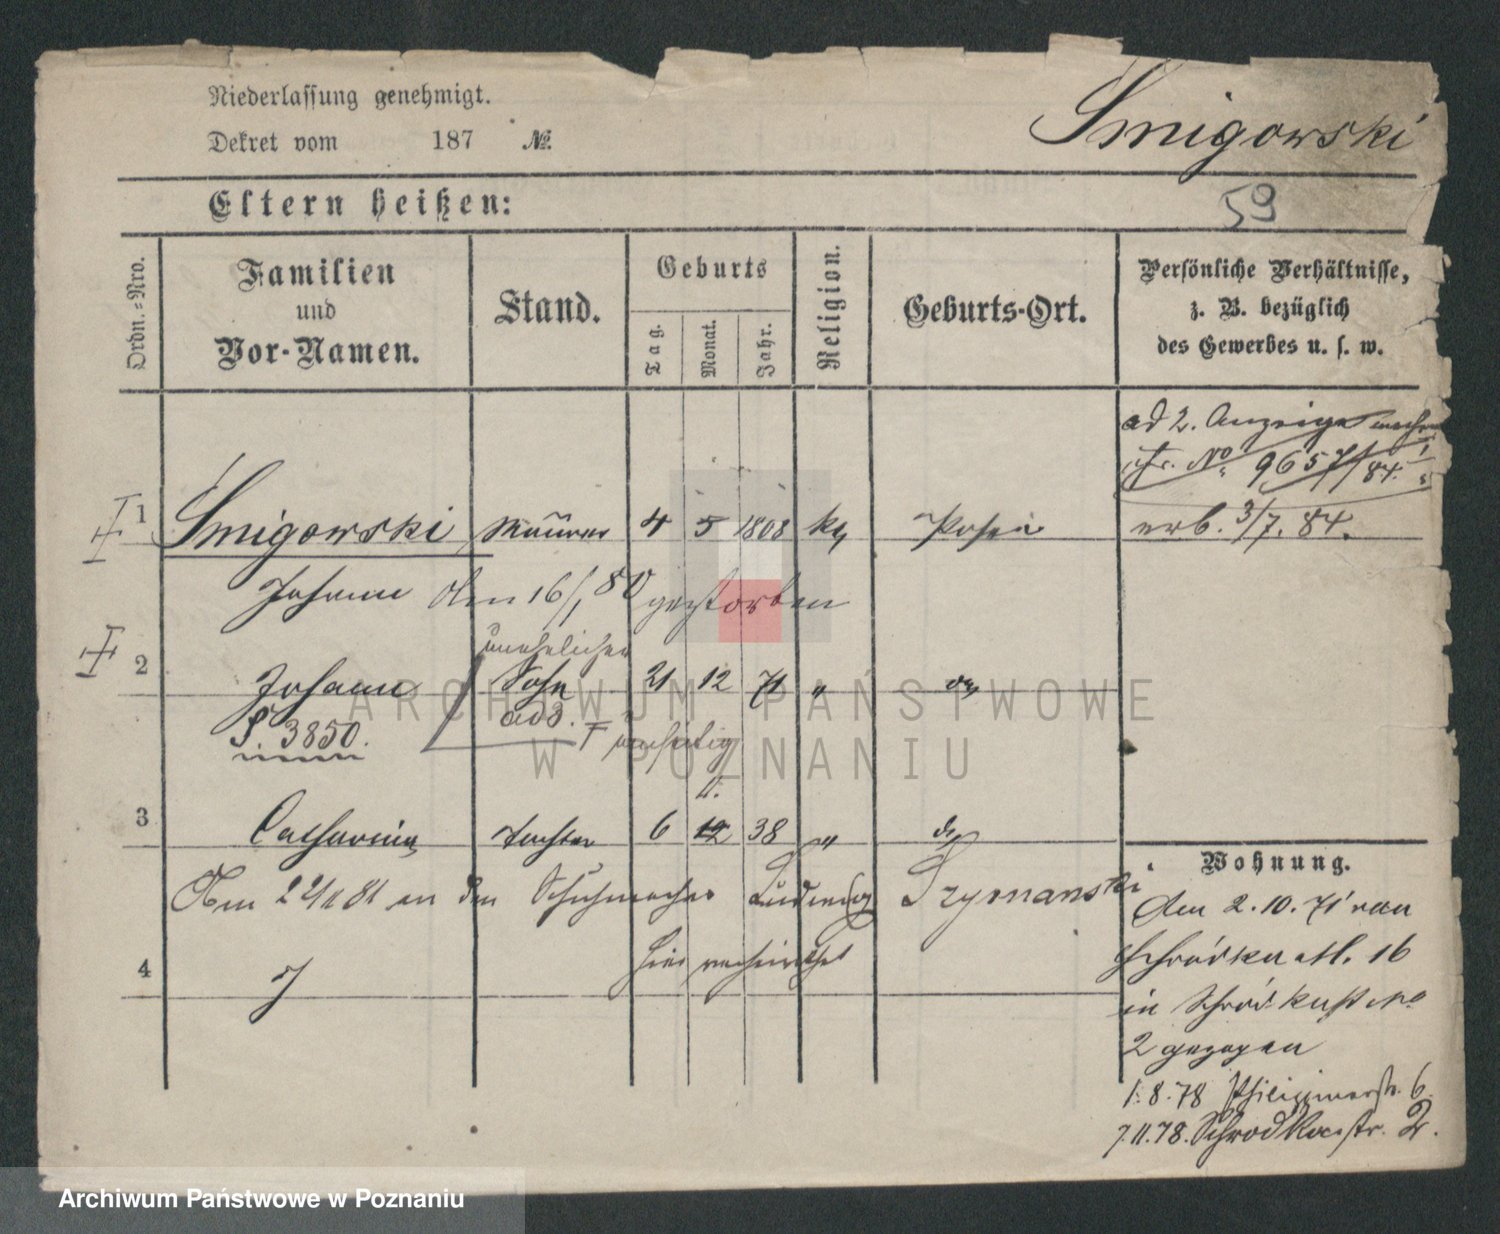 Niederlassung genehmigt.
Dekret vom 187 №
Smigowski
59
Eltern heißen:
Ordn.-Nro.
Familien
und
Vor-Namen.
Stand.
Geburts
Tag.
Monat.
Jahr.
Religion.
Geburts-Ort.
Persönliche Verhältnisse,
z. B. bezüglich
des Gewerbes u. s. w.
ad 2. Anzeige machen
No 9657/84.
erb. 3/7. 84.
1 Smigowski Maurer 4 5 1808 kg Posen
Johann den 16/1 80 gestorben
unehelicher
2 Johann Sohn 21 12 71 "
ad 3.
S. 3850.
11.
3 Catharina Tochter 6 12 38 "
Am 22/1 81 an den Schuhmacher Ludwig Szymanski
hier verheirathet
4
Wohnung.
Den 2. 10. 71 von
Schrodka 16
in Schrodkastr No
2 gezogen
1. 8. 78 6
7. 11. 78. Schrodkastr. 2.
ARCHIWUM PAŃSTWOWE
W POZNANIU
Archiwum Państwowe w Poznaniu